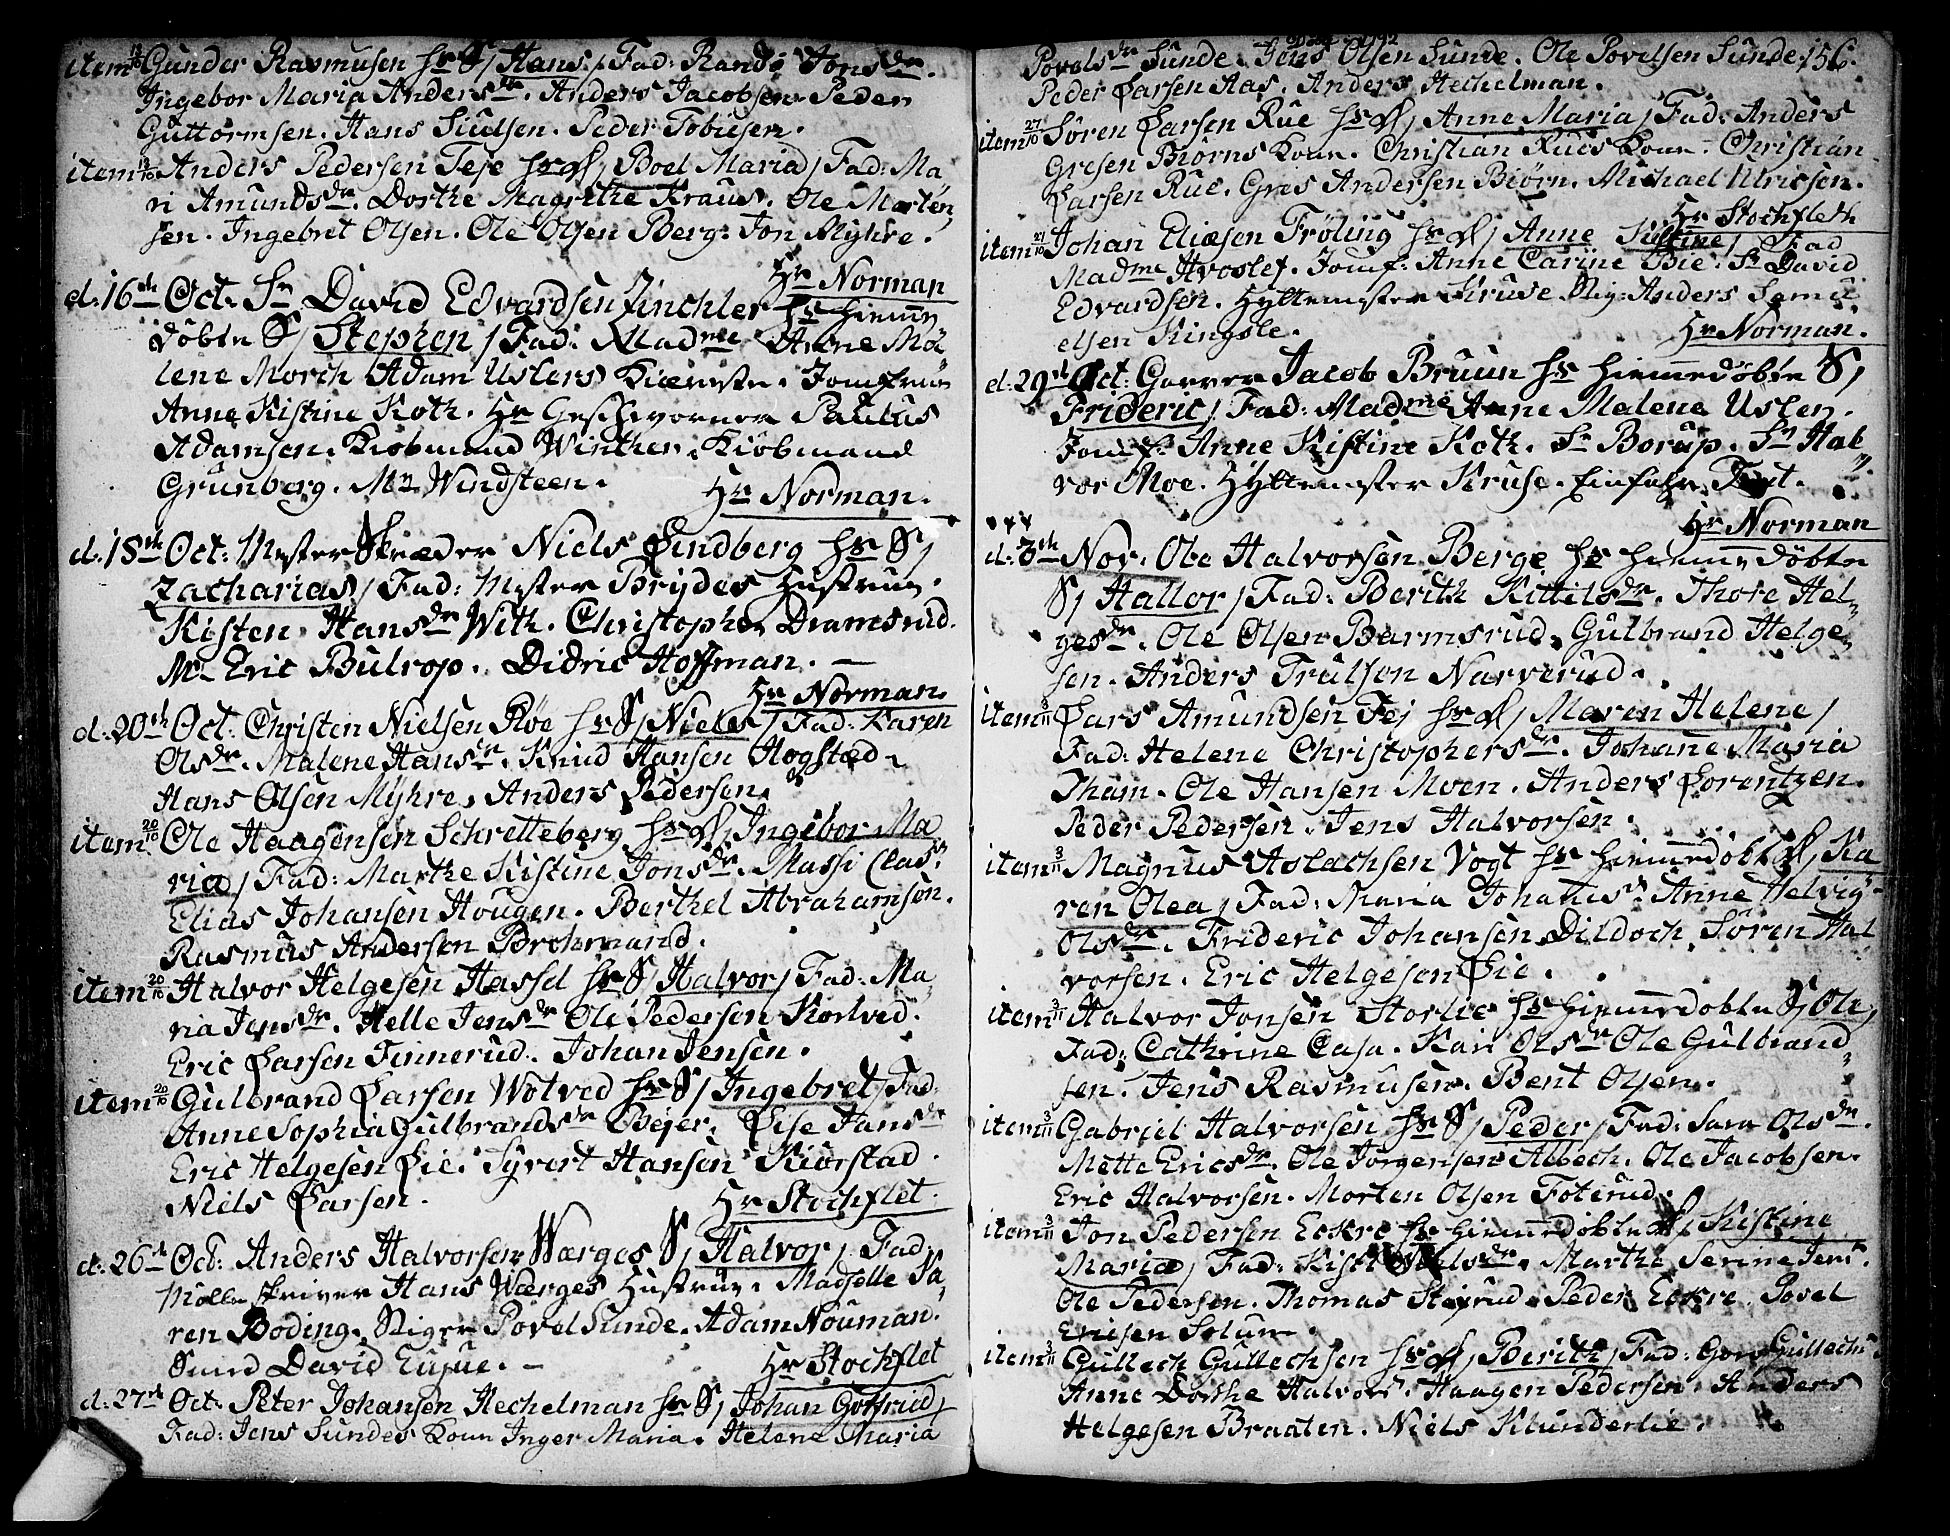 item 13/10 Gunder Rasmusen hs S/ Hans/ Fad: Randi Jonsdr.
Ingebor Maria Andersdr. Anders Jacobsen. Peder
Guttormsen. Hans Siulsen. Peder Tobiesen.
item 13/10 Anders Pedersen Teje hs D/ Boel Maria/ Fad: Ma
ri Amundsdr. Dorthe Magrethe Kraus. Ole Morten
sen. Ingebret Olsen. Ole Olsen Berg. Jon Myhre.
Hr Norman
d. 16de Oct. Sr David Edvardsen Zinchler hs hiemme
døbte S/ Stephen/ Fad: Madme Anne Ma
lene Morch Adam Uslers Kiæreste. Jomfrue
Anne Kistine Koth. Hr Geschworner Paulus
Adamsen. Kiøbmand Winther. Kiøbmand
Grunberg. Mr Windsteen.
Hr Norman.
d. 18de Oct: Mester Skræder Niels Lindberg hs S/
Zacharias/ Fad: Mester Brydes Hustrue.
Kisten Hansdr With. Christopher Dramsrud.
Mr Eric Bulrop. Didric Hoffman. —
Hr Norman.
d. 20de Oct. Christen Nielsen Røe hs S/ Niels/ Fad: Karen
Olsdr. Malene Hansdr. Knud Hansen Hogstad.
Hans Olsen Myhre. Anders Pedersen.
item 20/10 Ole Haagensen Schretteberg hs D/ Ingebor Ma
ria/ Fad: Marthe Kistine Jonsdr. Massi Clas
Elias Johansen Hougen. Berthel Abrahamsen.
Rasmus Andersen Brohmand.
item 20/10 Halvor Helgesen Hassel hs S/ Halvor/ Fad: Ma
ria Jensdr. Helle Jensdr Ole Pedersen Korlved.
Eric Larsen Tinnerud. Johan Jensen.
item 20/10 Gulbrand Larsen Wolved hs S/ Ingebret/ Fad:
Anne Sophia Gulbrandsdr Bejer. Lise Jansdr
Eric Helgesen Lie. Syvert Hansen Kiørstad.
Niels Larsen.
Hr Stochflet.
d. 26de Oct: Anders Halvorsen Wærges S/ Halvor/ Fad
Mølle skriver Hans Wærges Hustrue. Madselle Ka
ren Boding. Stiger Povel Sunde. Adam Nouman.
Smed David
Hr Stochflet
d. 27de Oct. Peter Johansen Hechelman hs S/ Johan Gotfried/
Fad: Jens Sundes Kone Inger Maria. Helene Maria
1792
Povelsdr Sunde. Jens Olsen Sunde. Ole Povelsen Sunde. 156.
Peder Larsen Aas. Anders Hechelman.
item 27/10 Søren Larsen Rue hs D/ Anne Maria/ Fad: Anders
Gresen Biørns Kone. Christian Rues Kone. Christian
Larsen Rue. Gres Andersen Biørn. Michael Ulricsen.
Hr Stochfleth
item 27/10 Johan Eliæsen Frøling hs D/ Anne Kistine/ Fad
Madme Hvoslef. Jomf: Anne Carine Bie. Sr David
Edvardsen. Hyttemester Kruse. Stig: Anders Samu
elsen Kingsle.
Hr Norman.
d. 29de Oct: Garver Jacob Bruun hs hiemmedøbte S/
Frideric/ Fad: Madme Anne Malene Usler.
Jomf: Anne Kistine Koth. Sr Borup. Sr Hal
vor Moe. Hyttemester Kruse. Einfahr Fort.
Hr Norman
d. 3de Nov. Ole Halvorsen Berge hs hiemme døbte
S/ Hallor/ Fad: Berith Kittilsdr. Thore Hel
gesdr. Ole Olsen Barmsrud. Gulbrand Helge
sen. Anders Trulson Narverud.
item 3/11 Lars Amundsen Fej hs D/ Maren Helene/
Fad: Helene Christophersdr. Johane Maria
Tham. Ole Hansen Moen. Anders Lorentzen.
Peder Pedersen. Jens Halvorsen.
item 3/11 Magnus Aslachsen Vogt hs hiemmedøbt D/ Ka
ren Olea/ Fad: Maria Johanisdr Anne Helvig
Olsdr. Frideric Johansen Dildoch. Søren Hal
vorsen. Eric Helgesen Lie.
item 3/11 Halvor Jonsen Storlie hs hiemmedøbte S/ Ole/
Fad: Cathrine Casa. Kari Olsdr Ole Gulbrand
sen. Jens Rasmusen. Bent Olsen.
item 3/11 Gabriel Halvorsen hs S/ Peder/ Fad: Sara Olsdr.
Mette Ericsdr. Ole Jørgensen Albech. Ole Jacobsen.
Eric Halvorsen. Morten Olsen Foterud.
item 3/11 Jon Pedersen Eckre hs hiemmedøbte D/ Kistine
Maria/ Fad: Kisti Nielsdr. Marthe Serine Jens.
Ole Pedersen. Thomas Peder Eckre. Povel
Ericsen Solum.
item 3/11 Gullech Gullechsen hs D/ Berith/ Fad: Goro Gullechs
Anne Dorthe Halvors. Haagen Pedersen. Anders
Helgesen Braaten. Niels Klunderlie.